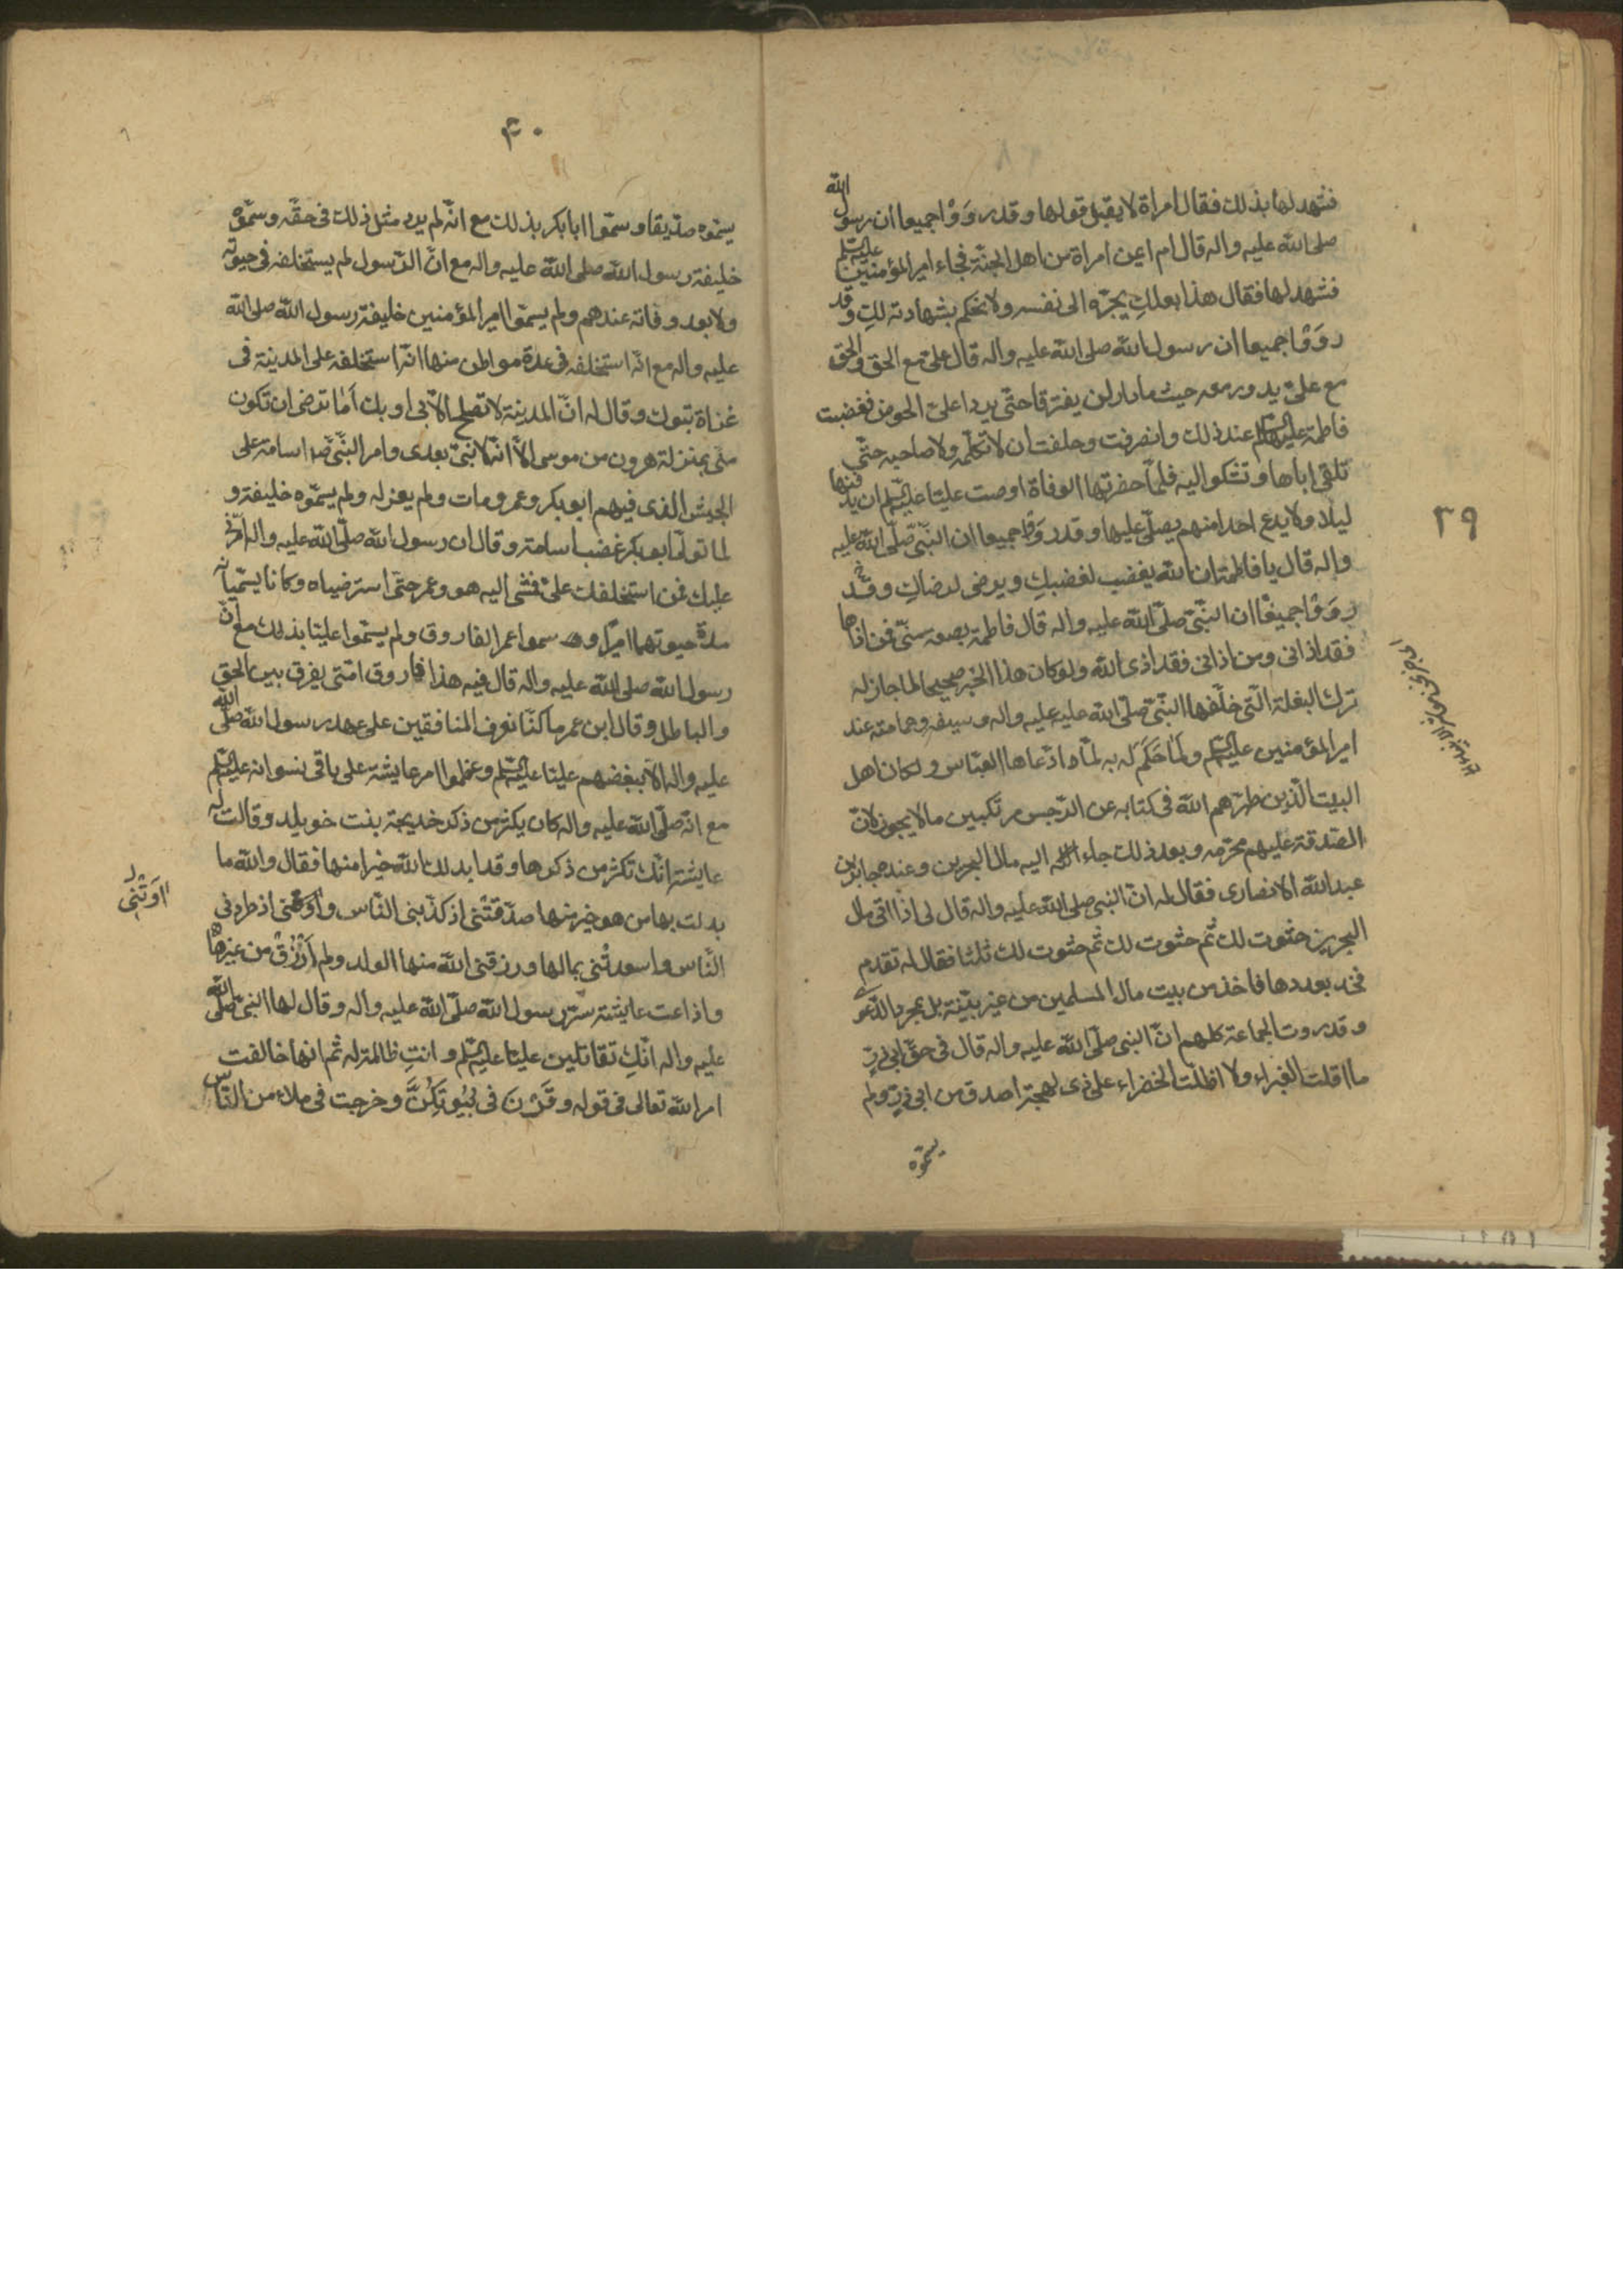 ٣٩
فشهد لها بذلك فقال امراة لا يقبل قولها و قد رَوَوْا جميعا ان رسول الله
صلى الله عليه واله قال ام ايمن امراة من اهل الجنة فجاء امير المؤمنين عليه السلم
فشهد لها فقال هذا بعلكِ يجرّه الى نفسه ولا نحكم بشهادته لكِ وقد
روَوْا جميعا ان رسول الله صلى الله عليه واله قال علىّ مع الحق والحق
مع علىّ يدور معه حيث ما دار لن يفترقا حتّى يردا علىّ الحوض فغضبت
فاطمة عليها السلم عند ذلك وانصرفت وحلفت ان لا تكلّمه ولا صاحبه حتّى
تلقى اباها و تشكوا اليه فلمّا حضرتها الوفاة اوصت عليّا عليه السلم ان يدفنها
ليلا ولا يدع احدا منهم يصلّى عليها و قد رَوَوْا جميعا ان النّبّى صلّى الله عليه
واله قال يا فاطمة ان الله يغضب لغضبكِ و يرضى لرضاكِ و قد
روَوْا جميعًا ان النّبّى صلّى الله عليه واله قال فاطمة بضعه منّى فمن اذاها
فقد اذانى ومن اذانى فقد اذى الله ولو كان هذا الخبر صحيحا لما جاز له
ترك البغلة الّتى خلّفها النّبّى صلّى الله عليه واله و سيفه وعمامته عند
امير المؤمنين عليه السلم ولَمَا حَكَم له به لمّا ادّعاها العبّاس و لكان اهل
البيت الّذين طهّرهم الله فى كتابه عن الرّجس مرتكبين مالا يجوز لانّ
الصّدقة عليهم محرّمه و بعد ذلك جاء اليه مال البحرين و عنده جابر بن
عبد الله الانصارى فقال له انّ النبى صلى الله عليه واله قال لى اذا اتى مال
البحرين حثوت لك ثم حثوت لك ثم حثوت لك ثلثا فقال له تقدم
فخد بعددها فاخذ من بيت مال المسلمين من غير بيّنة بل بمجرد الدّعوى
و قد روت الجماعة كلهم انّ النبى صلّى الله عليه واله قال فى حقّ ابى ذرّ
ما اقلت الغبراء ولا اظلّت الخضراء على ذى لهجة اصدق من ابى ذرّ ولم
يسمّوه
٤٠
يسمّوه صدّيقا و سمّوا ابا بكر بذلك مع انّه لم يرد مثل ذلك فى حقّه و سمّوه
خليفة رسول الله صلى الله عليه واله مع انّ الرّسول لم يستخلفه فى حيوته
ولا بعد وفاته عندهم ولم يسمّوا امير المؤمنين خليفة رسول الله صلى الله
عليه واله مع انّه استخلفه فى عدة مواطن منها انّه استخلفه على المدينة فى
غزاة تبوك و قال له انّ المدينة لا تصلح الّا بى او بك اَمَا ترضى ان تكون
منّى بمنزلة هرون من موسى الّا انّه لا نبىّ بعدى و امر النّبّى ص اسامة على
الجيش الذى فيهم ابو بكر و عمر و مات ولم يعزله ولم يسمّوه خليفة و
لما تولّى ابو بكر غضب اسامة و قال ان رسول الله صلّى الله عليه واله امّرنى
عليك فمن استخلفك علىّ فمشى اليه هو و عمر حتى استرضياه و كانا يسمّيانه
مدة حيوتهما اميرًا و سموا عمر الفاروق ولم يسمّوا عليّا بذلك مع انّ
رسول الله صلى الله عليه واله قال فيه هذا فاروق امّتى يفرق بين الحق
والباطل و قال ابن عمر ما كنّا نعرف المنافقين على عهد رسول الله صلّى الله
عليه واله الّا ببغضهم عليّا عليه السلم و عظموا امر عايشة على باقى نسوانه عليه السلم
مع انّه صلّى الله عليه واله كان يكثر من ذكر خديجة بنت خويلد و قالت له
عايشة انّك تكثر من ذكرها و قد ابدلك الله خيرا منها فقال والله ما
بدلت بها من هو خير منها صدّقتْنى اذ كذّبنى النّاس و اوتنى اذ طردنى
اوَتْنى
النّاس و اسعدتْنى بمالها و رزقنى الله منها الولد ولم اُرْزَقْ من غيرها
و اذاعت عايشة سرّ رسول الله صلّى الله عليه واله و قال لها النبى صلّى الله
عليه واله انّكِ تقاتلين عليّا عليه السلم و انتِ ظالمة له ثم انها خالفت
امر الله تعالى فى قوله و قَرْنَ فى بُيُوتِكُنَّ و خرجت فى ملاء من النّاس